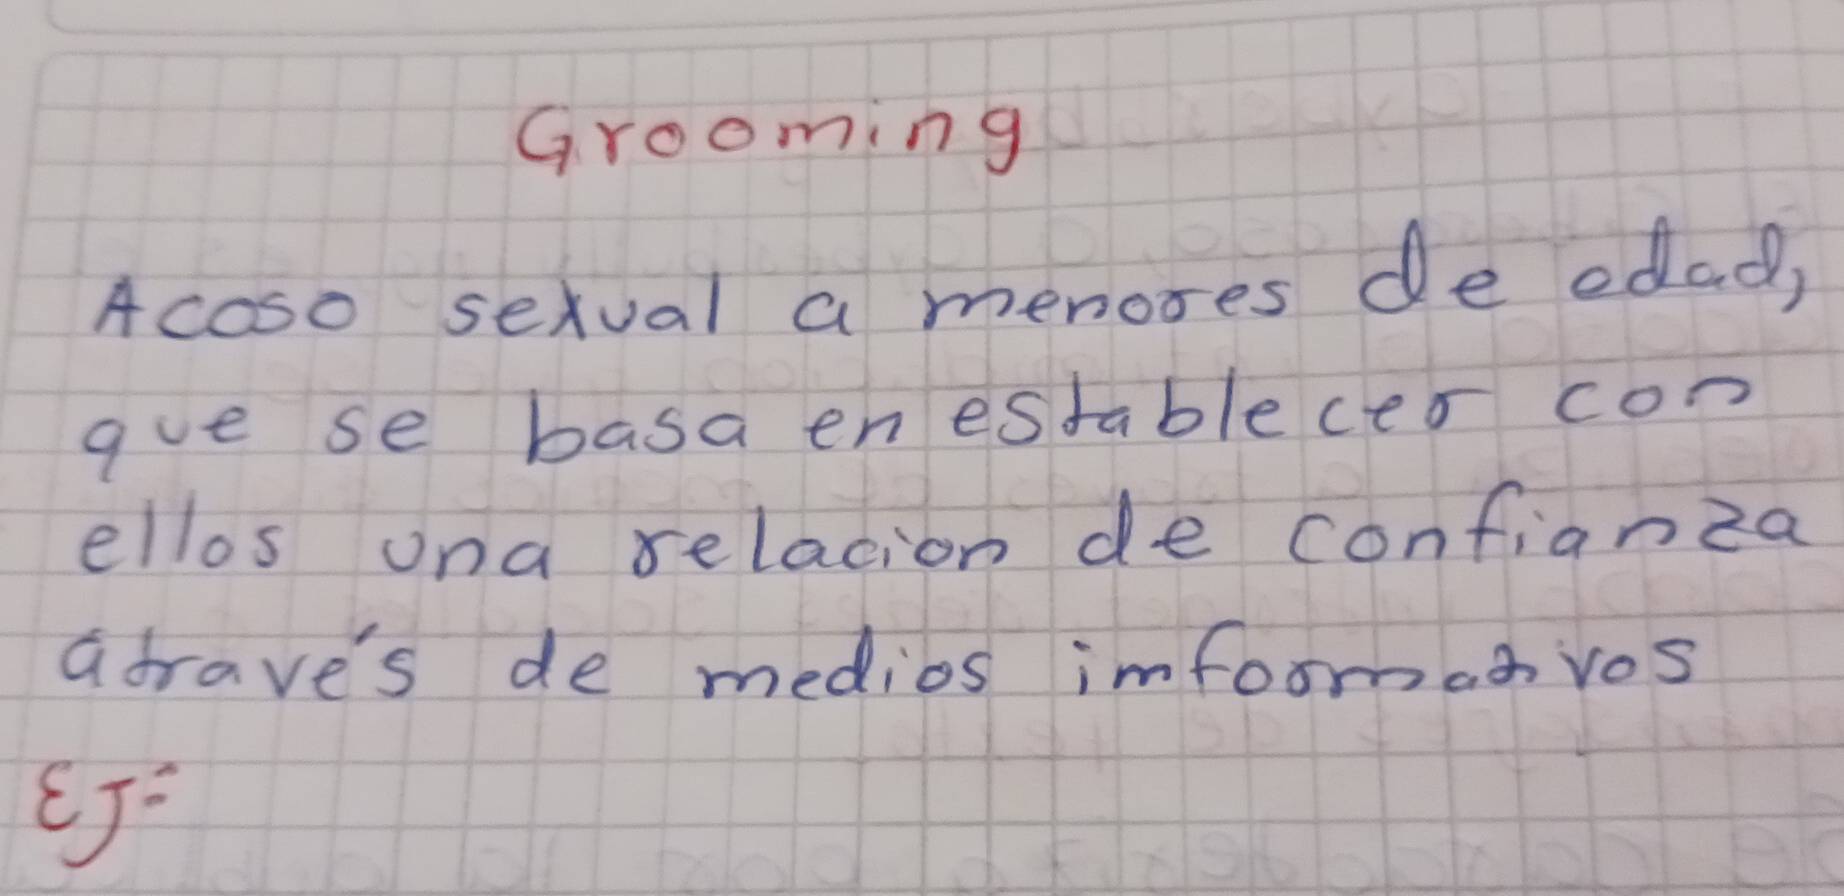 Grooming
Acoso sexual a menores de edad,
que se basa en establecer con
ellos una relacion de confianza
através de medios imformativos
EJ: